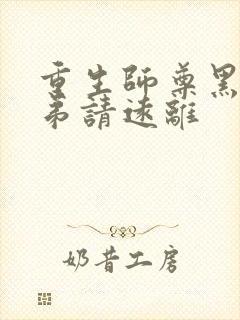 重生師尊黑
弟請遠離
奶昔工房